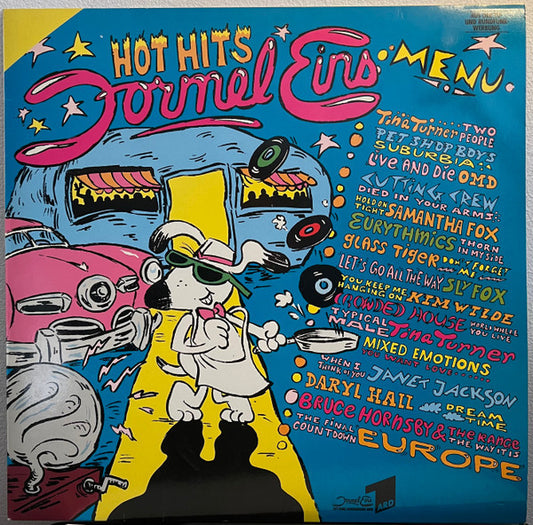 UND RUNDFUNK-
WERBUNG
HOT HITS
Formel Eins
MENU
Tina Turner TWO PEOPLE
PET SHOP BOYS
SUBURBIA
Live AND Die OMD
CUTTING CREW
DIED IN YOUR ARMS
HOLD ON TIGHT SAMANTHA FOX
EURYTHMICS THORN IN MY SIDE
glass TIGER DON'T FORGET ME
LET'S GO ALL THE WAY SLY FOX
YOU KEEP ME HANGING ON KIM WILDE
CROWDED HOUSE WORLD WHERE YOU LIVE
TYPICAL MALE Tina Turner
MIXED EMOTIONS
YOU WANT LOVE
WHEN I THINK OF YOU JANET JACKSON
DARYL HALL DREAM TIME
BRUCE HORNSBY & THE RANGE THE WAY IT IS
THE FINAL COUNTDOWN EUROPE
Formel Eins
ARD
1